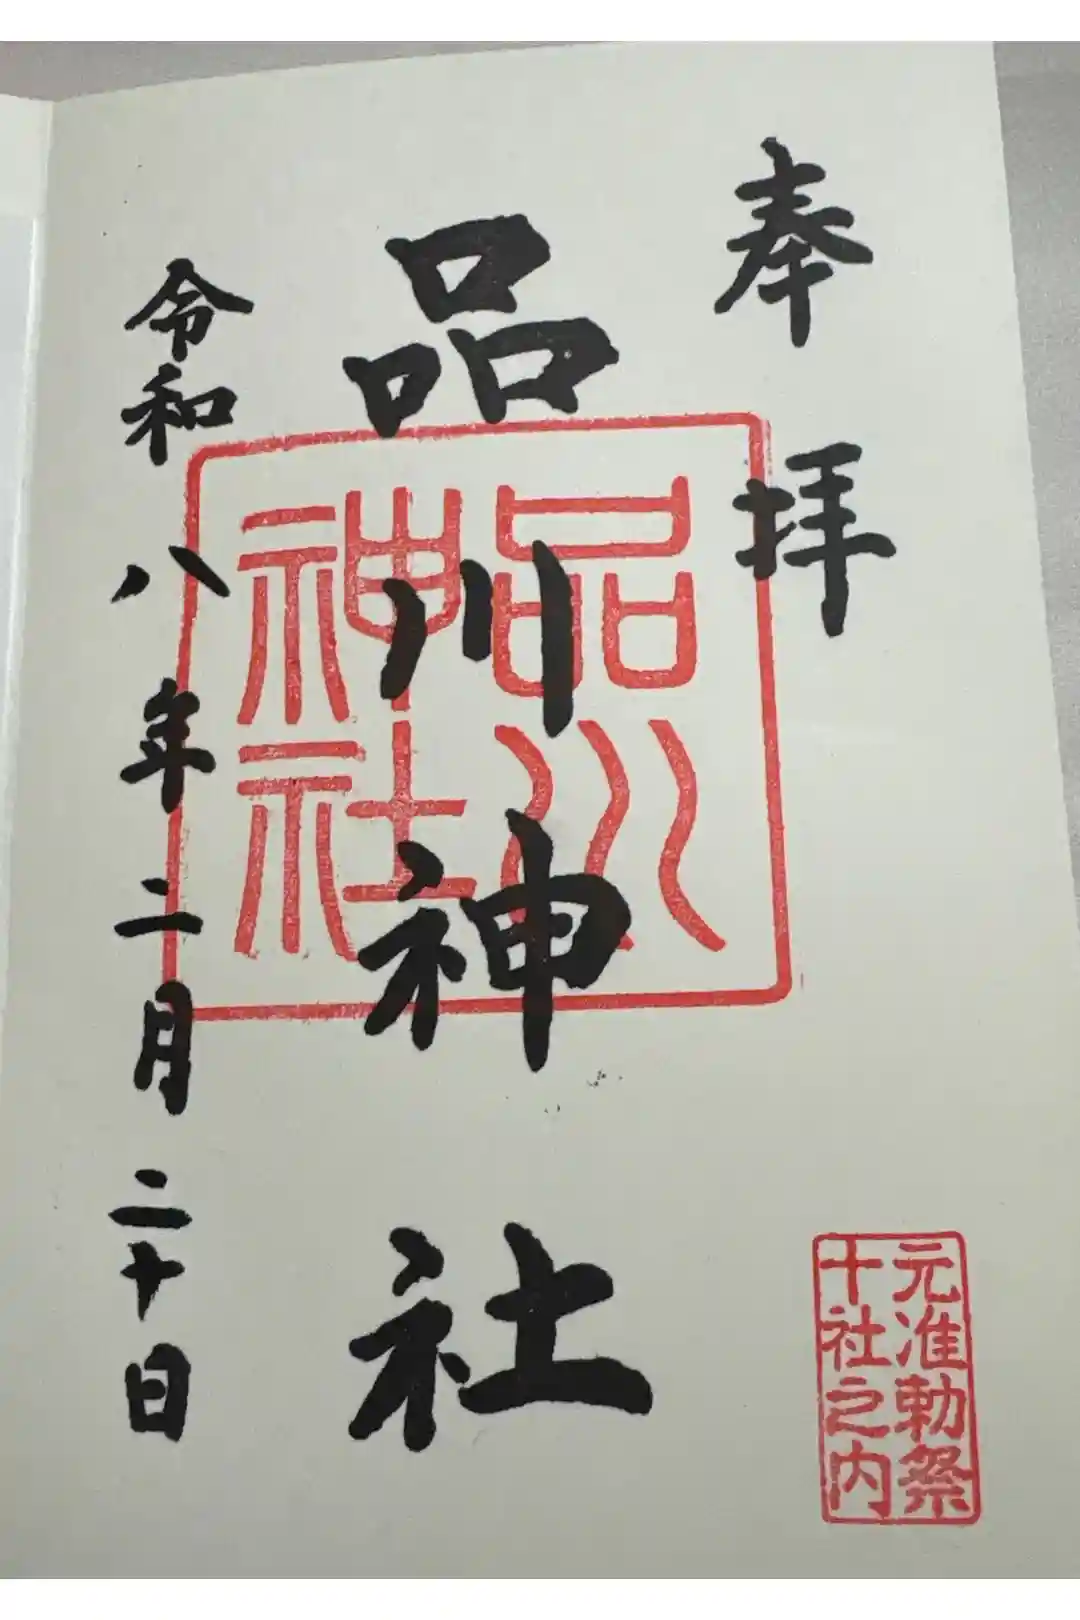 奉拝
品川神社
令和八年二月二十日
品川
神社
元准勅祭
十社之内